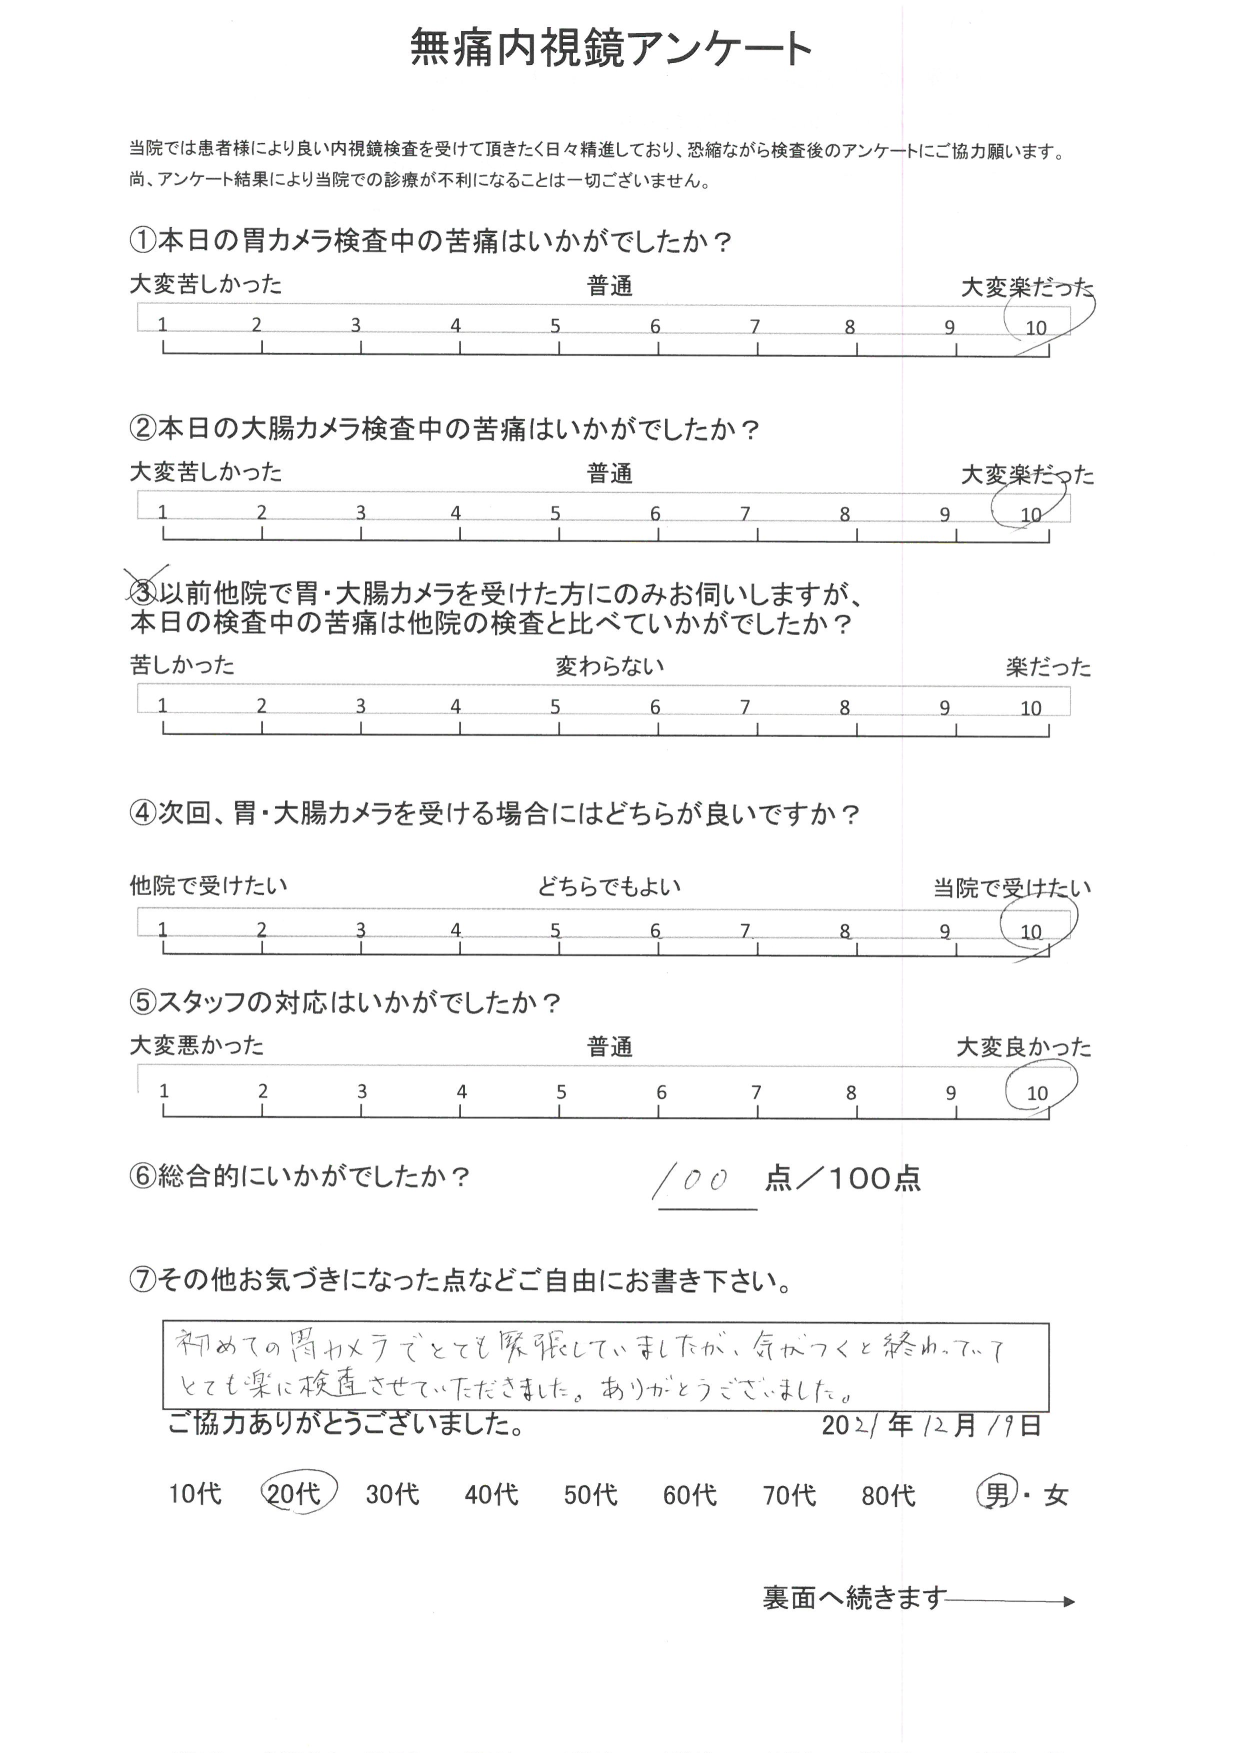 無痛内視鏡アンケート
当院では患者様により良い内視鏡検査を受けて頂きたく日々精進しており、恐縮ながら検査後のアンケートにご協力願います。
尚、アンケート結果により当院での診療が不利になることは一切ございません。
①本日の胃カメラ検査中の苦痛はいかがでしたか?
大変苦しかった 普通 大変楽だった
1 2 3 4 5 6 7 8 9 10
②本日の大腸カメラ検査中の苦痛はいかがでしたか?
大変苦しかった 普通 大変楽だった
1 2 3 4 5 6 7 8 9 10
③以前他院で胃・大腸カメラを受けた方にのみお伺いしますが、
本日の検査中の苦痛は他院の検査と比べていかがでしたか?
苦しかった 変わらない 楽だった
1 2 3 4 5 6 7 8 9 10
④次回、胃・大腸カメラを受ける場合にはどちらが良いですか?
他院で受けたい どちらでもよい 当院で受けたい
1 2 3 4 5 6 7 8 9 10
⑤スタッフの対応はいかがでしたか?
大変悪かった 普通 大変良かった
1 2 3 4 5 6 7 8 9 10
⑥総合的にいかがでしたか? 100 点/100点
⑦その他お気づきになった点などご自由にお書き下さい。
初めての胃カメラでとても緊張していましたが、気がつくと終わっていて
とても楽に検査させていただきました。ありがとうございました。
ご協力ありがとうございました。 2021年12月19日
10代 20代 30代 40代 50代 60代 70代 80代 男・女
裏面へ続きます